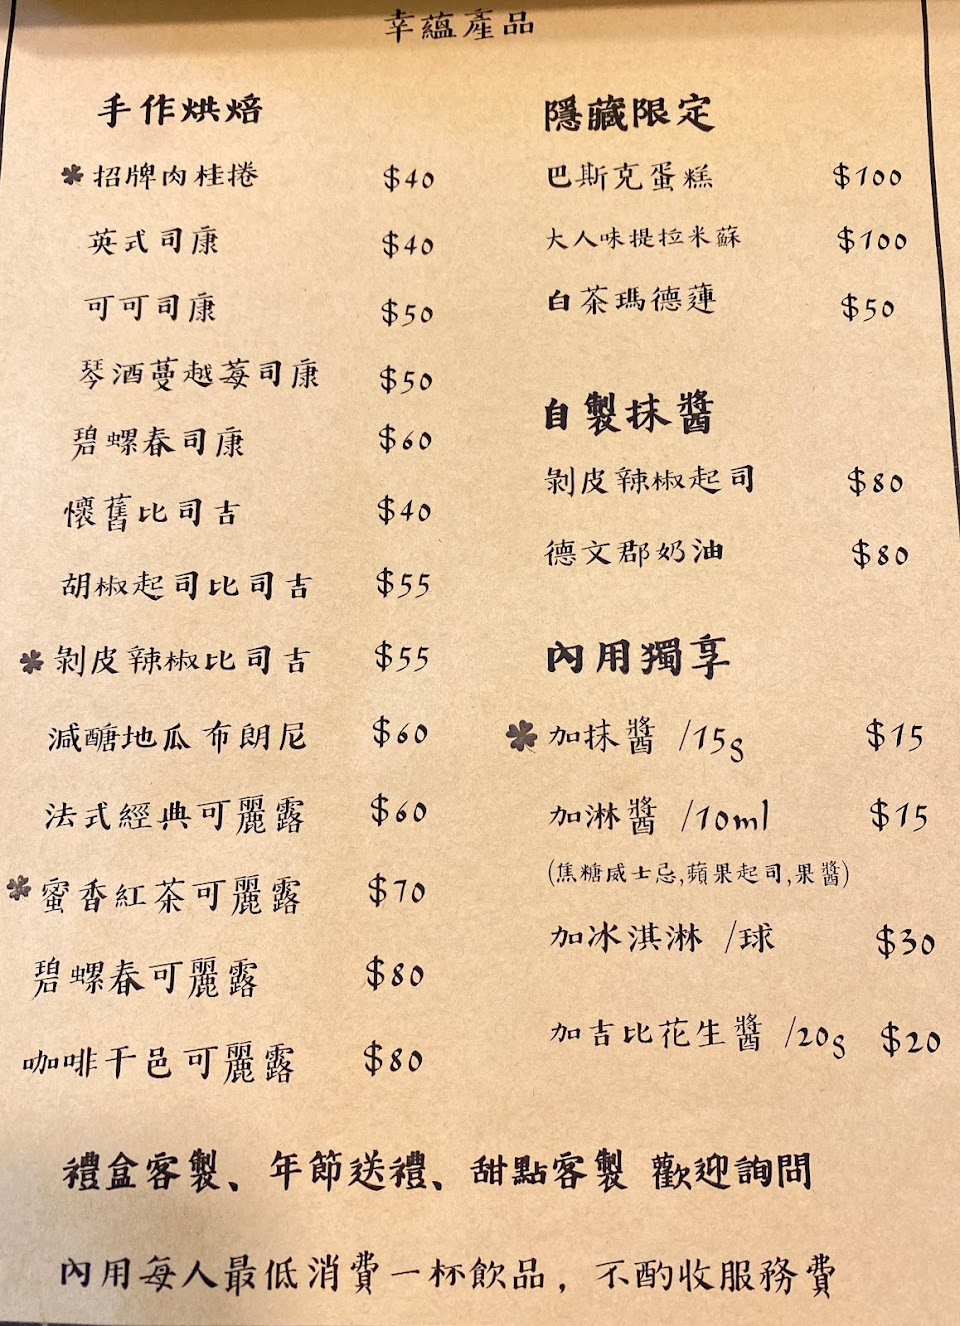 幸蘊產品
手作烘焙
招牌肉桂捲 $40
英式司康 $40
可可司康 $50
琴酒蔓越莓司康 $50
碧螺春司康 $60
懷舊比司吉 $40
胡椒起司比司吉 $55
剝皮辣椒比司吉 $55
減醣地瓜布朗尼 $60
法式經典可麗露 $60
蜜香紅茶可麗露 $70
碧螺春可麗露 $80
咖啡干邑可麗露 $80
隱藏限定
巴斯克蛋糕 $100
大人味提拉米蘇 $100
白茶瑪德蓮 $50
自製抹醬
剝皮辣椒起司 $80
德文郡奶油 $80
內用獨享
加抹醬 /15g $15
加淋醬 /10ml $15
(焦糖威士忌,蘋果起司,果醬)
加冰淇淋 /球 $30
加吉比花生醬 /20g $20
禮盒客製、年節送禮、甜點客製 歡迎詢問
內用每人最低消費一杯飲品，不酌收服務費